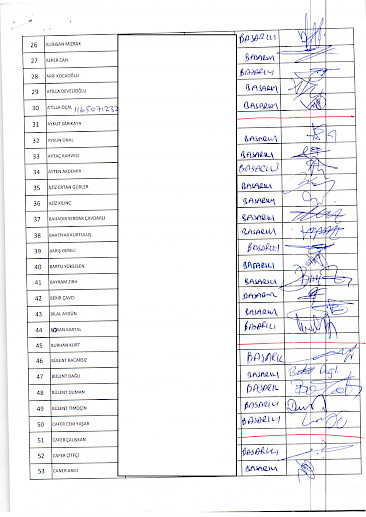 26 ALİHSAN MIZRAK BAŞARILI
27 ALPER CAN BAŞARILI
28 ARİF KOCAOĞLU BAŞARILI
29 ATİLLA DEVELİOĞLU BAŞARILI
30 ATİLLA ÖÇAL BAŞARILI
31 AYKUT SARIKAYA
32 AYSUN ÜNAL BAŞARILI
33 AYTAÇ KAHVECİ BAŞARILI
34 AYTEN AKDEMİR BAŞARILI
35 AZİZ ERTAN GÜRLER BAŞARILI
36 AZİZ KILINÇ BAŞARILI
37 BAHADIR SERDAR ÇAVDARLI BAŞARILI
38 BAHTİYAR KURTULUŞ BAŞARILI
39 BARIŞ DERELİ BAŞARILI
40 BARTU YÜKSELEN BAŞARILI
41 BAYRAM ZIRH BAŞARILI
42 BEKİR ÇAVCI BAŞARILI
43 BİLAL AYGÜN BAŞARILI
44 KARTAL BAŞARILI
45 BURHAN KURT
46 BÜLENT BACAKSIZ BAŞARILI
47 BÜLENT DAĞLI BAŞARILI
48 BÜLENT DUMAN BAŞARILI
49 BÜLENT TİMOÇİN BAŞARILI
50 CAFER CEM YAŞAR BAŞARILI
51 CAFER ÇALIŞKAN
52 CAFER ÇİTFÇİ BAŞARILI
53 CANER AVCI BAŞARILI